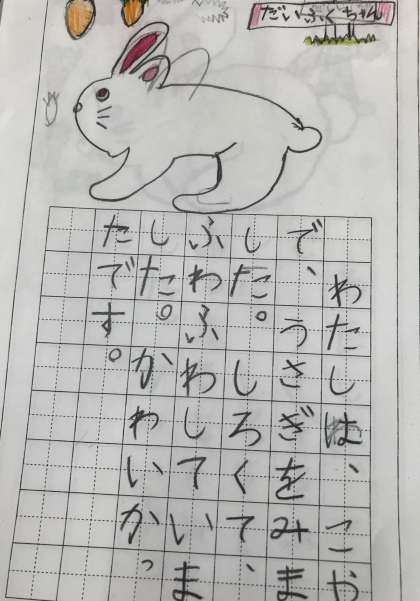 だいふくちゃん
わたしは、こや
で、うさぎをみま
した。しろくて、
ふわふわしていま
した。かわいかっ
たです。